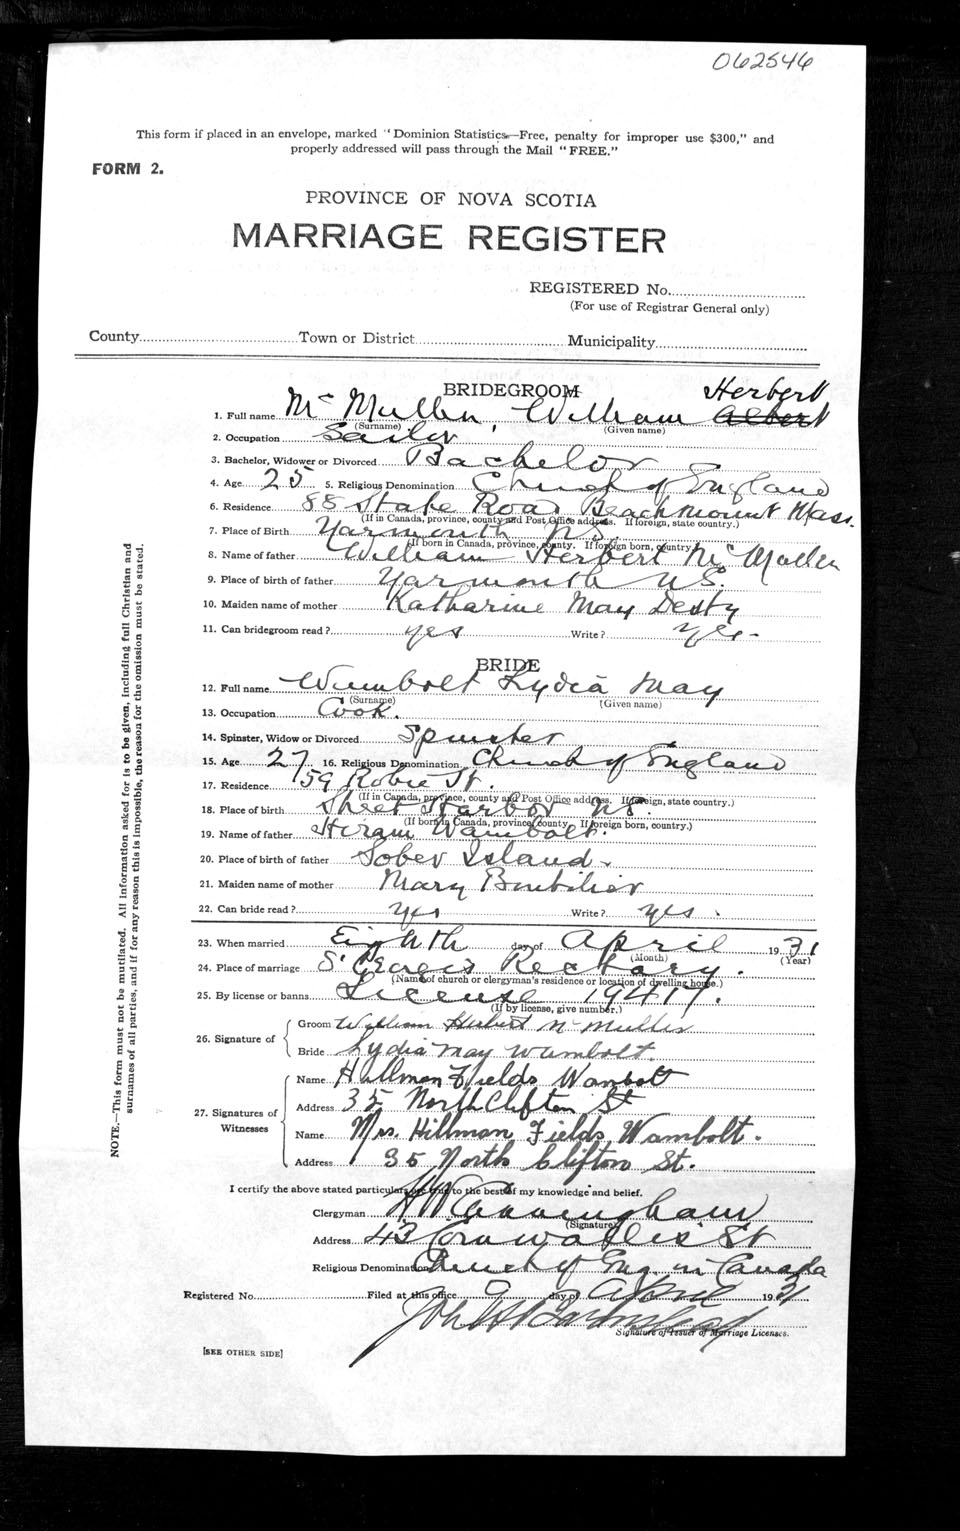 062546
This form if placed in an envelope, marked "Dominion Statistics—Free, penalty for improper use $300," and
properly addressed will pass through the Mail "FREE."
FORM 2.
PROVINCE OF NOVA SCOTIA
MARRIAGE REGISTER
REGISTERED No.
(For use of Registrar General only)
County Town or District Municipality
BRIDEGROOM Herbert
1. Full name Mc Mullen, William Albert
(Surname) (Given name)
2. Occupation Sailor
3. Bachelor, Widower or Divorced Bachelor
4. Age 25 5. Religious Denomination Church of England
6. Residence 88 State Road Beachmount Mass.
(If in Canada, province, county and Post Office address. If foreign, state country.)
7. Place of Birth Yarmouth NS.
(If born in Canada, province, county. If foreign born, country.)
8. Name of father William Herbert Mc Mullen
9. Place of birth of father Yarmouth NS.
10. Maiden name of mother Katharine May
11. Can bridegroom read? yes Write? yes
BRIDE
12. Full name Wambolt Lydia May
(Surname) (Given name)
13. Occupation Cook.
14. Spinster, Widow or Divorced Spinster
15. Age 27 16. Religious Denomination Church of England
17. Residence 159 Robie St.
(If in Canada, province, county and Post Office address. If foreign, state country.)
18. Place of birth Sheet Harbor NS.
(If born in Canada, province, county. If foreign born, country.)
19. Name of father Hiram Wambolt.
20. Place of birth of father Sober Island.
21. Maiden name of mother Mary
22. Can bride read? Yes Write? yes.
23. When married Eighth day of April 1931
(Month) (Year)
24. Place of marriage St Georges Rectory.
(Name of church or clergyman's residence or location of dwelling house.)
25. By license or banns License 19417.
(If by license, give number.)
26. Signature of
Groom William Herbert McMullen
Bride Lydia May Wambolt.
27. Signatures of
Witnesses
Name Hillman Fields Wambolt
Address 35 North Clifton St
Name Mrs. Hillman Fields Wambolt.
Address 35 North Clifton St.
I certify the above stated particulars are true to the best of my knowledge and belief.
Clergyman H W Cunningham
(Signature)
Address 43 Cornwallis St
Religious Denomination Church of Eng. in Canada
Registered No. Filed at this office 9 day of April 1931
Signature of Issuer of Marriage Licenses.
[SEE OTHER SIDE]
NOTE.—This form must not be mutilated. All information asked for is to be given, including full Christian and
surnames of all parties, and if for any reason this is impossible, the reason for the omission must be stated.